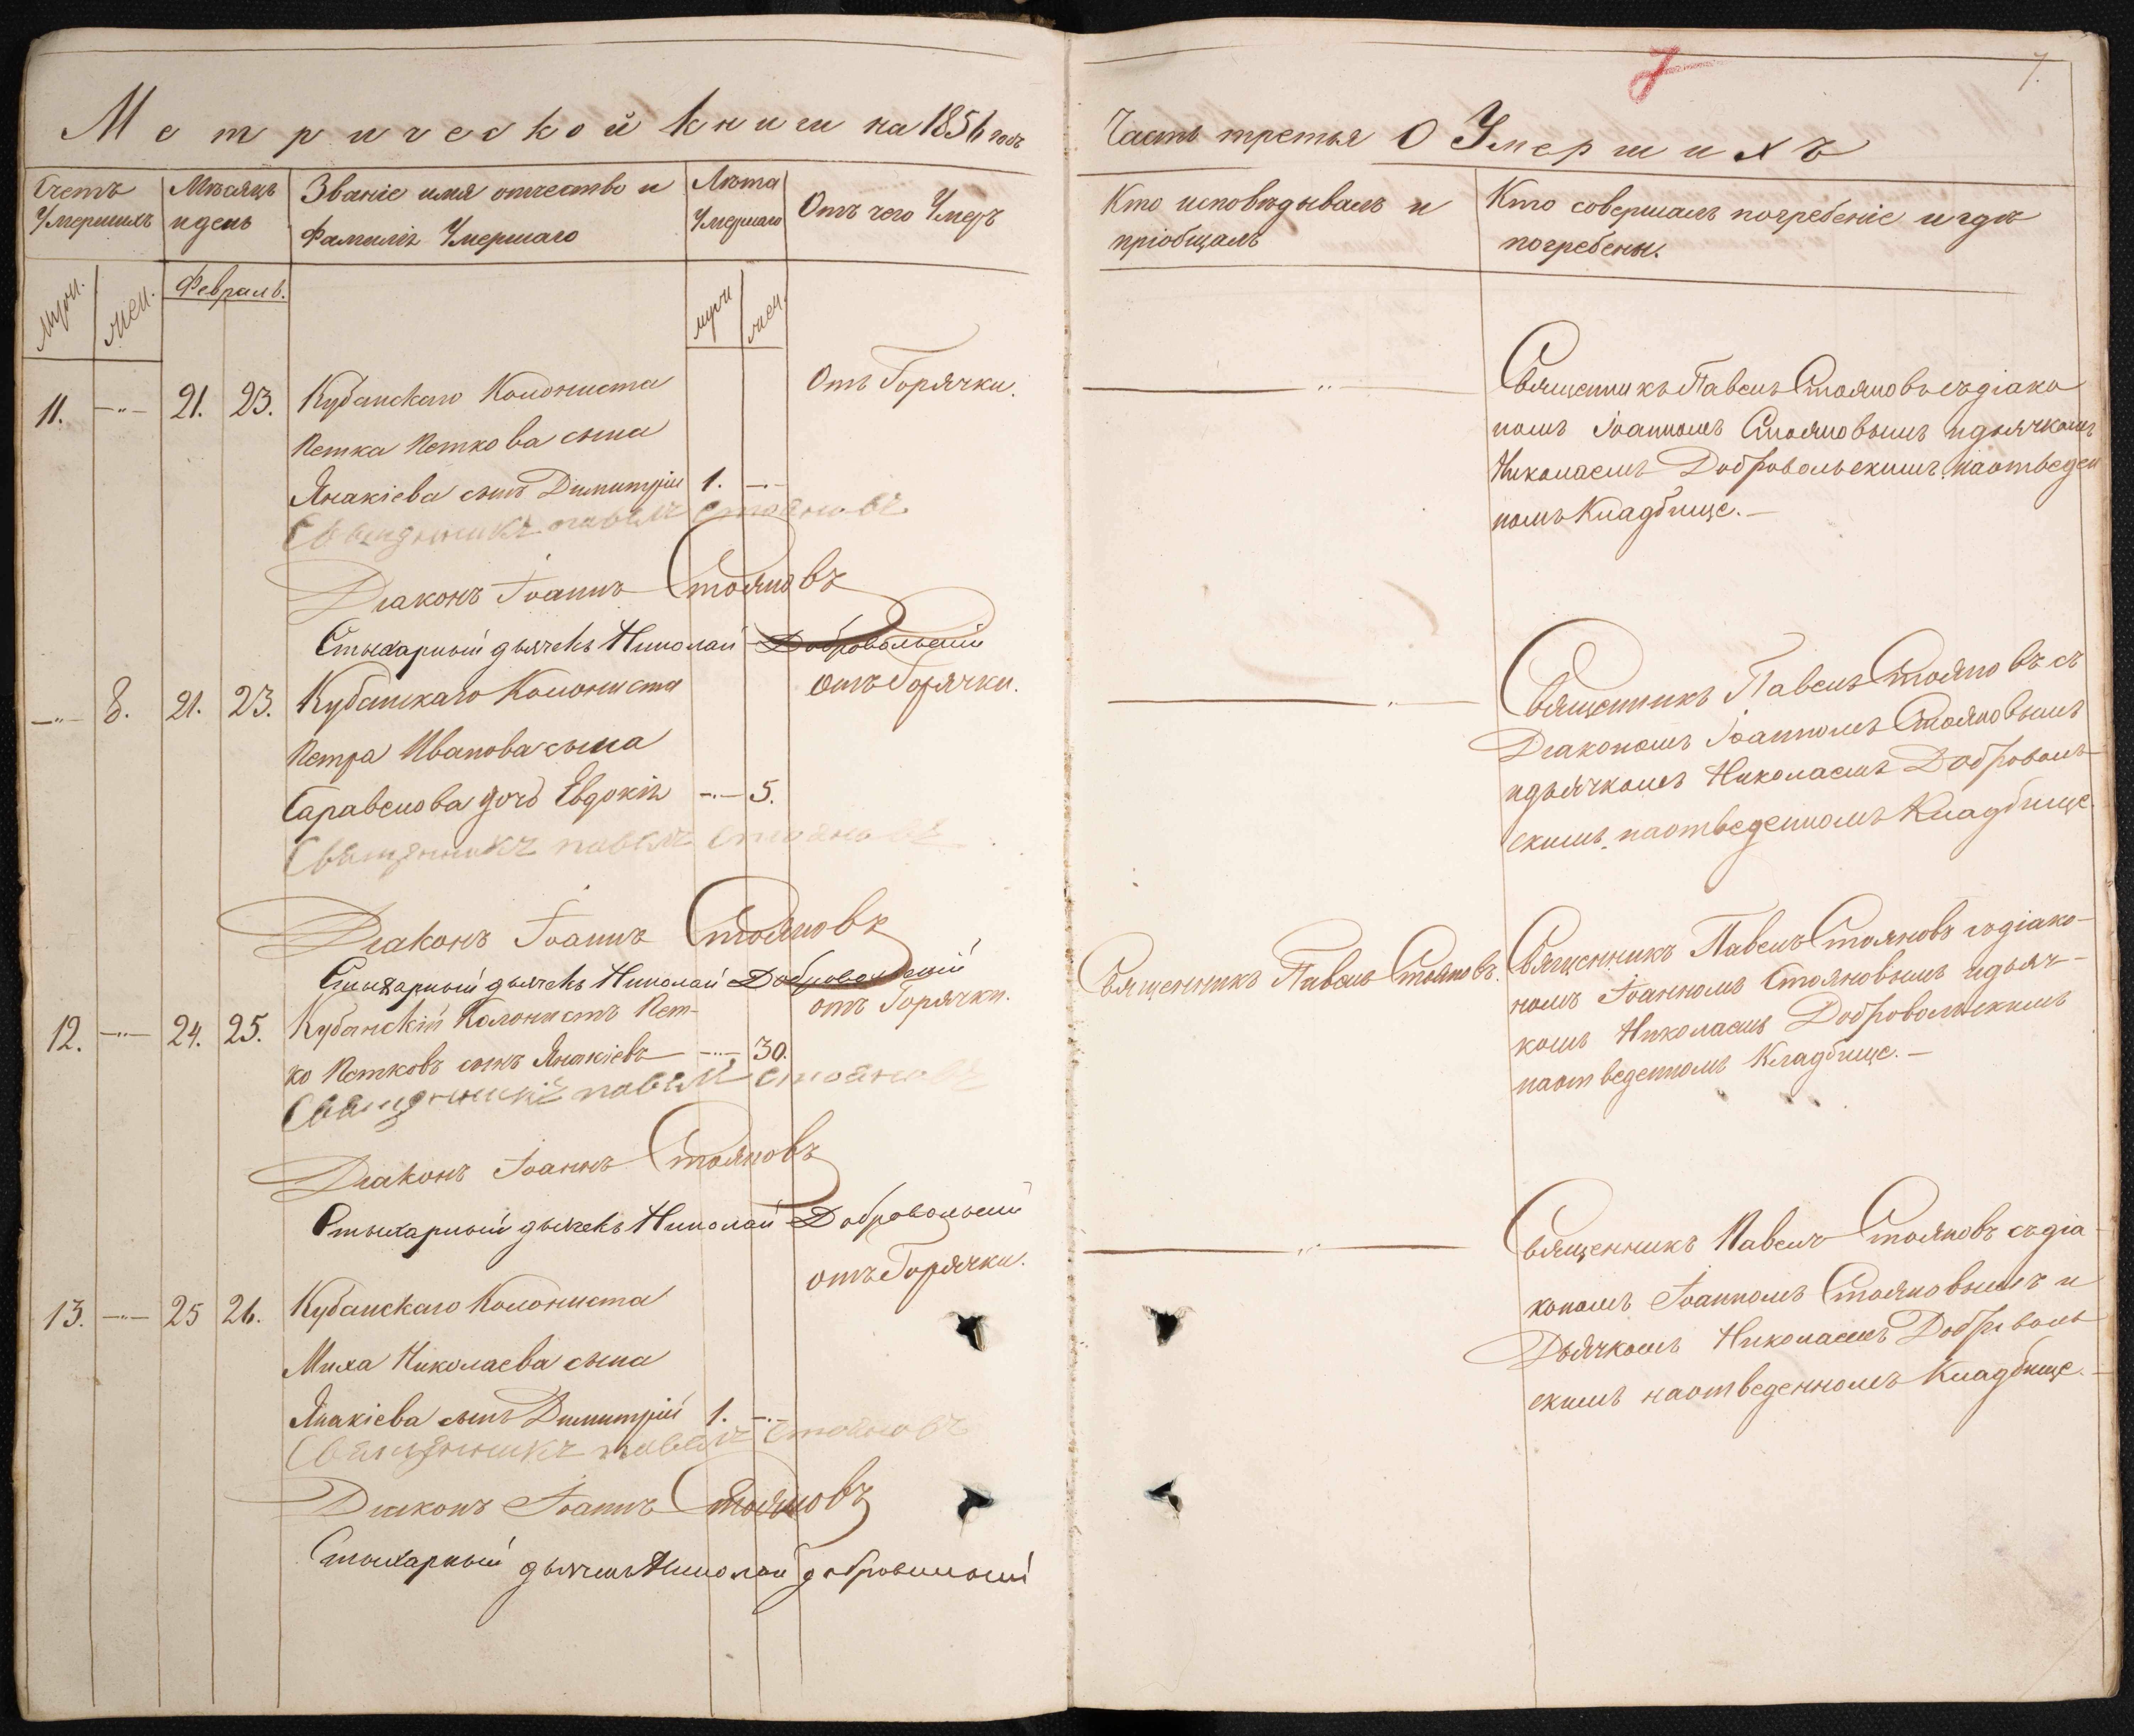 Метрической книги на 1856 годъ
Счетъ Умершихъ
Мѣсяцъ и день
Званіе имя отчество и Фамилія Умершаго
Лѣта Умершаго
Отъ чего Умеръ
муж.
жен.
Февраль.
муж
жен.
11.
21.
23.
Кубанскаго Колониста
Петка Петкова сына
Янакіева сынъ Димитрій 1.
Отъ Горячки.
Священникъ павелъ стояновъ
Діаконъ Іоаннъ Стояновъ
Стихарный дьячекъ Николай Добровольскій
8.
21.
23.
Кубанскаго Колониста
Петра Иванова сына
Саравенова дочь Евдокія 5.
отъ Горячки.
Священникъ павелъ стояновъ
Діаконъ Іоаннъ Стояновъ
Стихарный дьячекъ Николай Добровольскій
12.
24.
25.
Кубанскій Колонистъ Пет-
ко Петковъ сынъ Янакіевъ 30.
отъ Горячки.
Священникъ павелъ стояновъ
Діаконъ Іоаннъ Стояновъ
Стыхарный дьячекъ Николай Добровольскій
13.
25
26.
Кубанскаго Колониста
Миха Николаева сына
Янакіева сынъ Димитрій 1.
отъ Горячки.
Священникъ павелъ стояновъ
Діаконъ Іоаннъ Стояновъ
Стыхарный дьячекъ Николай добровольскій
7
7.
Часть третья О Умершихъ
Кто исповѣдывалъ и
пріобщалъ
Кто совершалъ погребеніе и гдѣ
погребены.
Священникъ Павелъ Стояновъ съ діако
номъ Іоанномъ Стояновымъ и дьячкомъ
Николаемъ Добровольскимъ на отведен
номъ Кладбище.—
Священникъ Павелъ Стояновъ съ
Діакономъ Іоанномъ Стояновымъ
и дьячкомъ Николаемъ Доброволь-
скимъ на отведенномъ Кладбище.
Священникъ Павелъ Стояновъ.
Священникъ Павелъ Стояновъ съ діако-
номъ Іоанномъ Стояновымъ и дьяч-
комъ Николаемъ Добровольскимъ
на отведенномъ Кладбище.—
Священникъ Павелъ Стояновъ съ діа-
кономъ Іоанномъ Стояновымъ и
Дьячкомъ Николаемъ Доброволь
скимъ на отведенномъ Кладбище.—